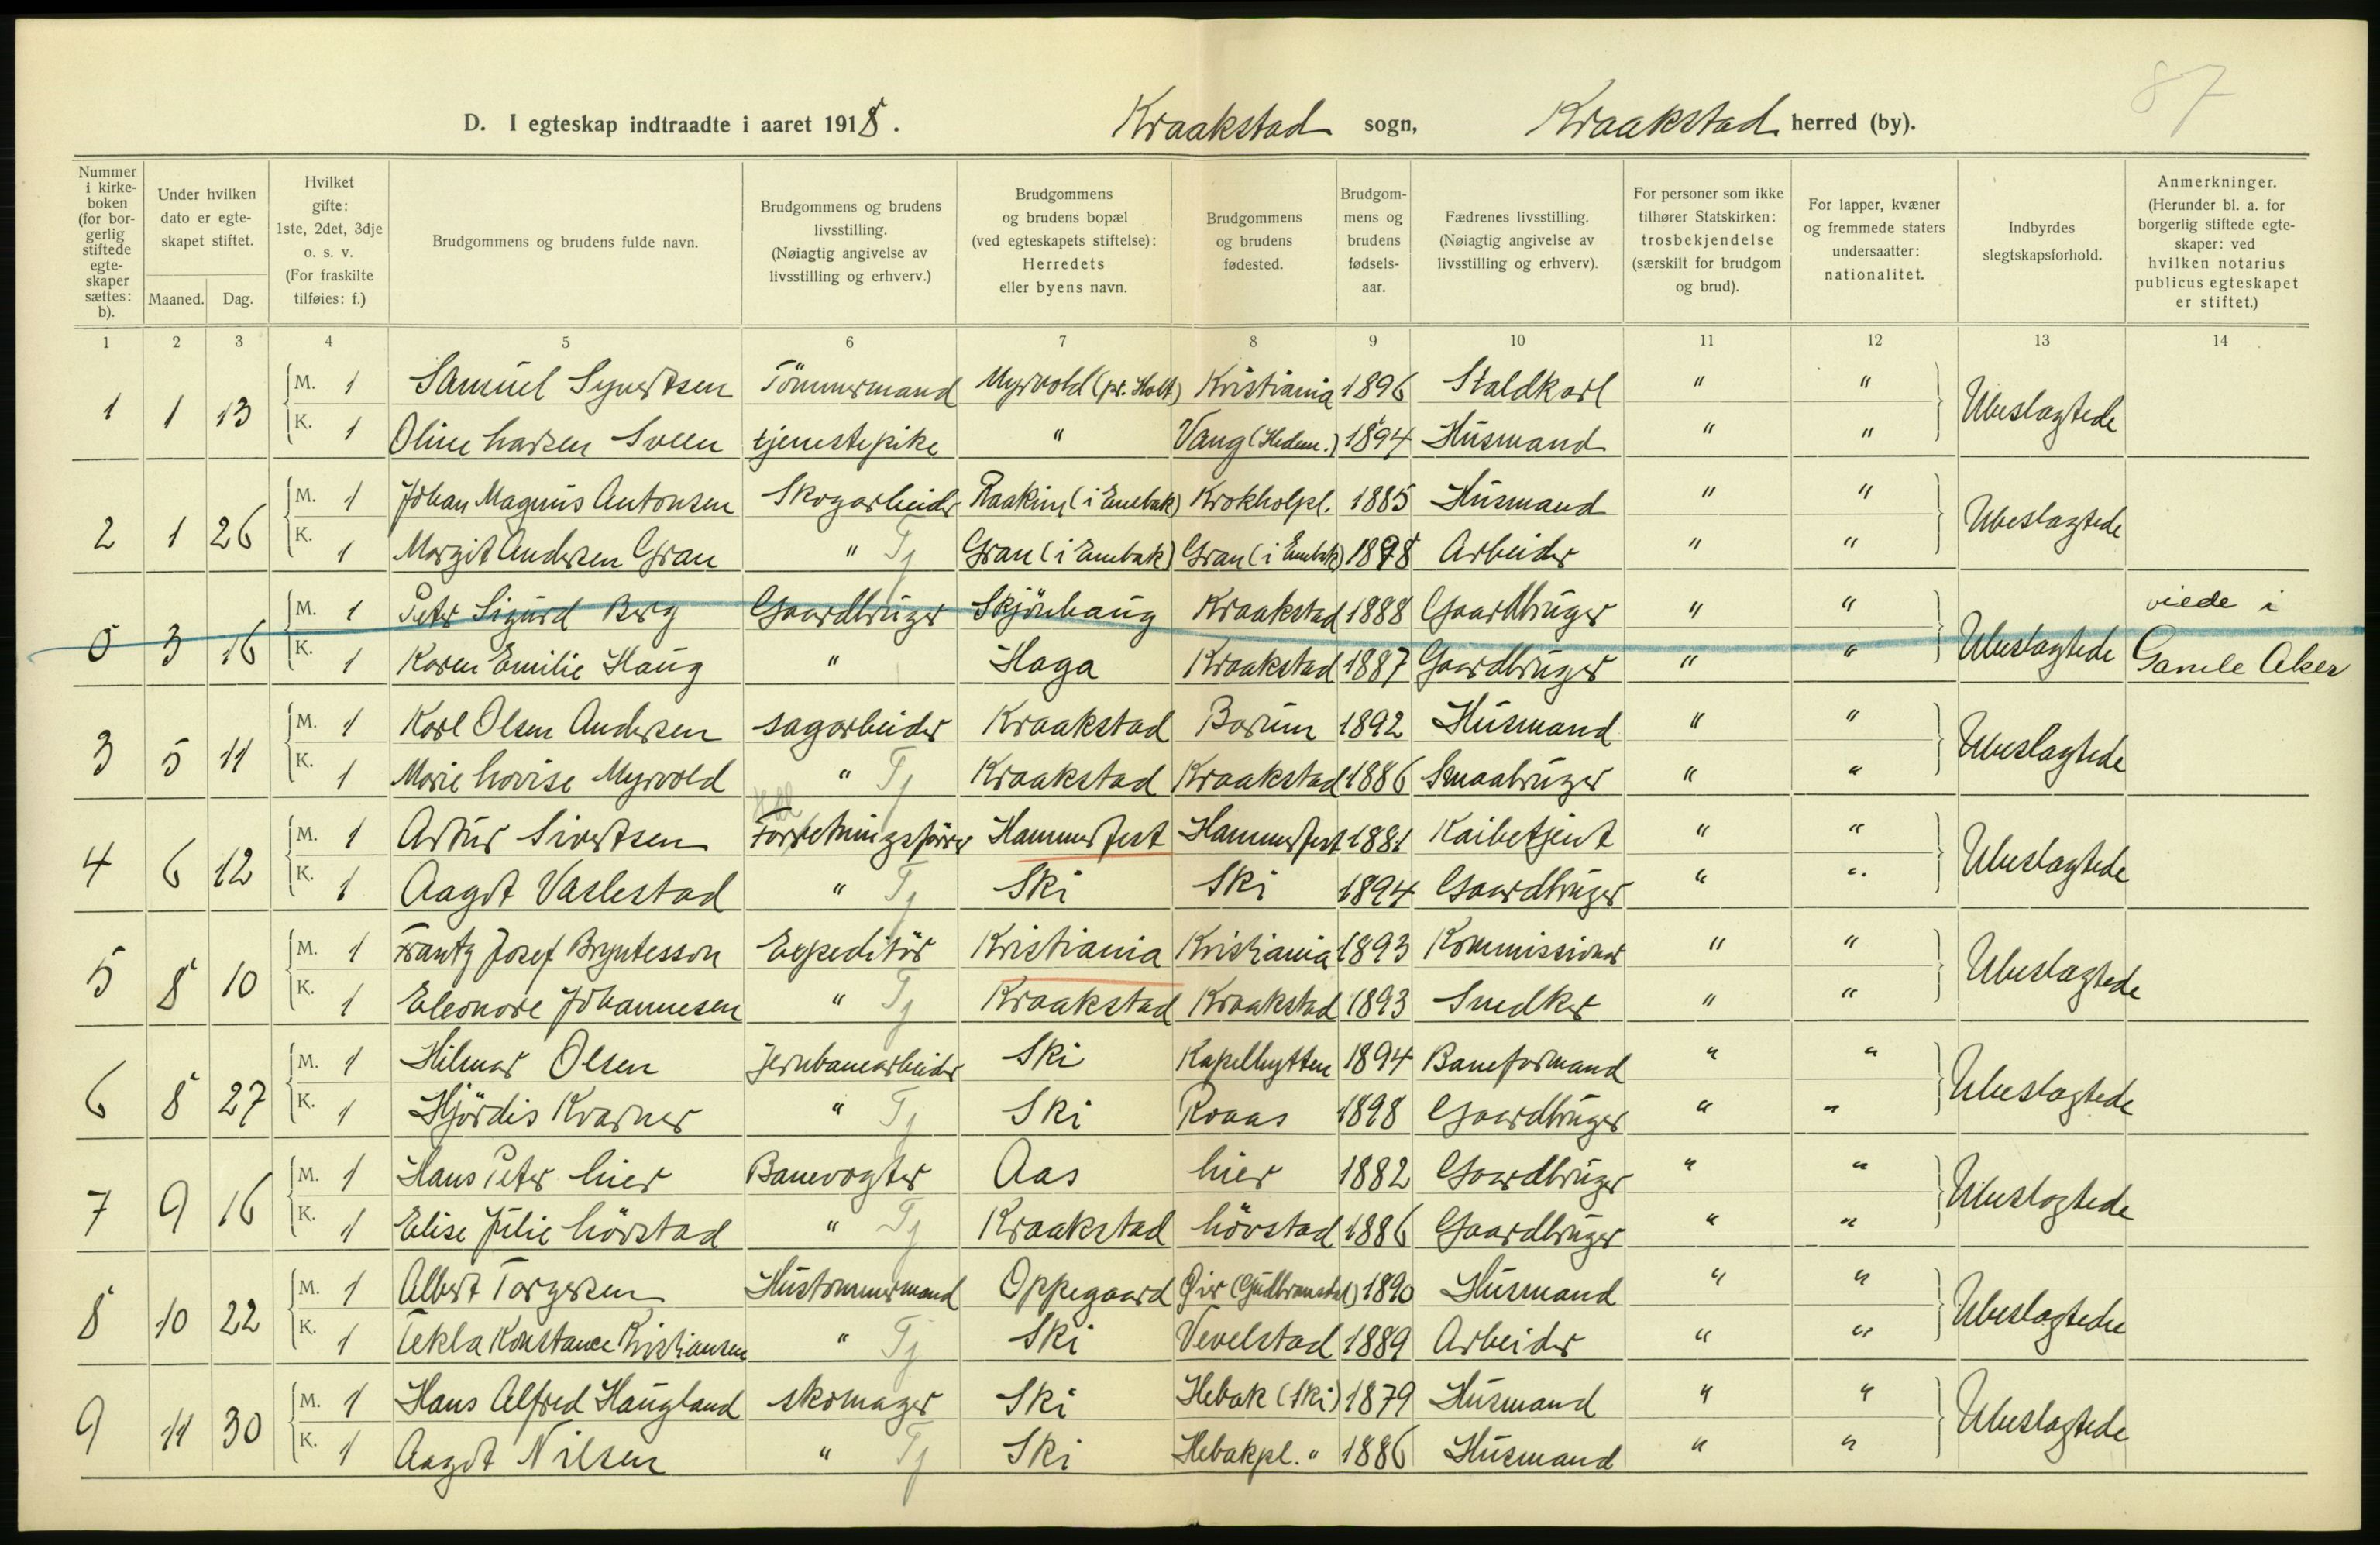 87
D. I egteskap indtraadte i aaret 1918. Kraakstad sogn, Kraakstad herred (by).
Nummer i kirke-boken (for bor-gerlig stiftede egte-skaper sættes: b).
Under hvilken dato er egte-skapet stiftet.
Maaned. Dag.
Hvilket gifte: 1ste, 2det, 3dje o. s. v. (For fraskilte tilføies: f.)
Brudgommens og brudens fulde navn.
Brudgommens og brudens livsstilling. (Nøiagtig angivelse av livsstilling og erhverv.)
Brudgommens og brudens bopæl (ved egteskapets stiftelse): Herredets eller byens navn.
Brudgommens og brudens fødested.
Brudgom-mens og brudens fødsels-aar.
Fædrenes livsstilling. (Nøiagtig angivelse av livsstilling og erhverv).
For personer som ikke tilhører Statskirken: trosbekjendelse (særskilt for brudgom og brud).
For lapper, kvæner og fremmede staters undersaatter: nationalitet.
Indbyrdes slegtskapsforhold.
Anmerkninger. (Herunder bl. a. for borgerlig stiftede egte-skaper: ved hvilken notarius publicus egteskapet er stiftet.)
1 2 3 4 5 6 7 8 9 10 11 12 13 14
1 1 13 M. 1 Samuel Syvertsen Tömmermand Myrvold (pr. Holt) Kristiania 1896 Staldkarl " " Ubeslagtede
K. 1 Oline Larsen Sveen tjenestepike " Vang (Hedem.) 1894 Husmand " "
2 1 26 M. 1 Johan Magnus Antonsen Skogarbeider Raakim (i Enebak) Krokholpl. 1885 Husmand " " Ubeslagtede
K. 1 Margit Andersen Gran " Tj Gran (i Enebak) Gran (i Enebak) 1898 Arbeider " "
0 3 16 M. 1 Peter Sigurd Berg Gaardbruger Skjönhaug Kraakstad 1888 Gaardbruger " " Ubeslagtede viede i
K. 1 Karen Emilie Haug " Haga Kraakstad 1887 Gaardbruger " " Gamle Aker
3 5 11 M. 1 Karl Olsen Andersen sagarbeider Kraakstad Bærum 1892 Husmand " " Ubeslagtede
K. 1 Marie Lovise Myrvold " Tj Kraakstad Kraakstad 1886 Smaabruger " "
4 6 12 M. 1 Artur Sivertsen Forretningsförer Hammerfest Hammerfest 1881 Kaibetjent " " Ubeslagtede
K. 1 Aagot Vaslestad " Tj Ski Ski 1894 Gaardbruger " "
5 8 10 M. 1 Frantz Josef Bryntesson Expeditör Kristiania Kristiania 1893 Kommissionær " " Ubeslagtede
K. 1 Eleonore Johannesen " Tj Kraakstad Kraakstad 1893 Snedker " "
6 8 27 M. 1 Hilmar Olsen Jernbanearbeider Ski Kapelhytten 1894 Baneformand " " Ubeslagtede
K. 1 Hjördis Kvarner " Tj Ski Roaas 1898 Gaardbruger " "
7 9 16 M. 1 Hans Peter Lier Banevogter Aas Lier 1882 Gaardbruger " " Ubeslagtede
K. 1 Elise Julie Lövstad " Tj Kraakstad Lövstad 1886 Gaardbruger " "
8 10 22 M. 1 Albert Torgersen Hustömmermand Oppegaard Öier (Gudbransdal) 1890 Husmand " " Ubeslagtede
K. 1 Tekla Konstance Kristiansen " Tj Ski Vevelstad 1889 Arbeider " "
9 11 30 M. 1 Hans Alfred Haugland skomager Ski Hebæk (Ski) 1879 Husmand " " Ubeslagtede
K. 1 Aagot Nilsen " Tj Ski Hebækpl. " 1886 Husmand " "